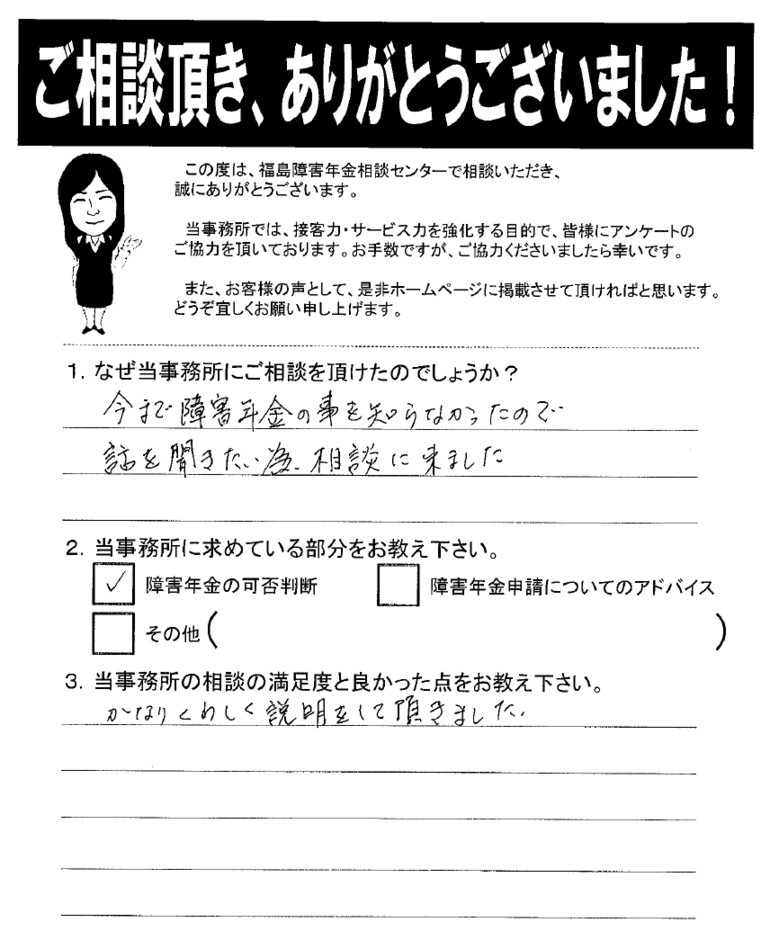 ご相談頂き、ありがとうございました！
この度は、福島障害年金相談センターで相談いただき、
誠にありがとうございます。
当事務所では、接客力・サービス力を強化する目的で、皆様にアンケートの
ご協力を頂いております。お手数ですが、ご協力くださいましたら幸いです。
また、お客様の声として、是非ホームページに掲載させて頂ければと思います。
どうぞ宜しくお願い申し上げます。
1. なぜ当事務所にご相談を頂けたのでしょうか？
今まで障害年金の事を知らなかったので
話を聞きたい為、相談に来ました
2. 当事務所に求めている部分をお教え下さい。
✓ 障害年金の可否判断 障害年金申請についてのアドバイス
その他( )
3. 当事務所の相談の満足度と良かった点をお教え下さい。
かなりくわしく説明をして頂きました。